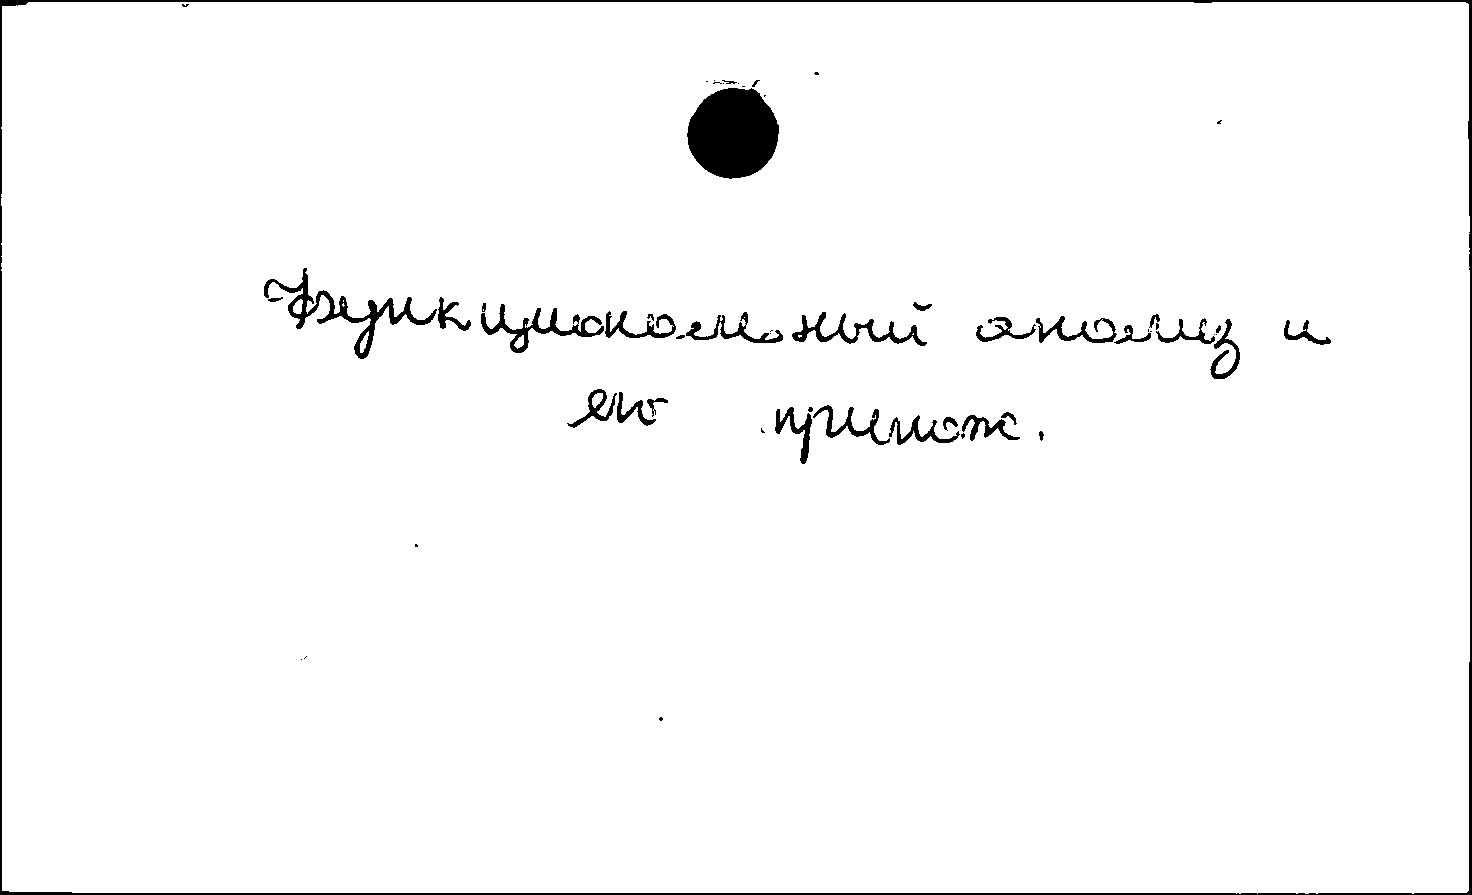 Функциональный анализ и
его прилож.